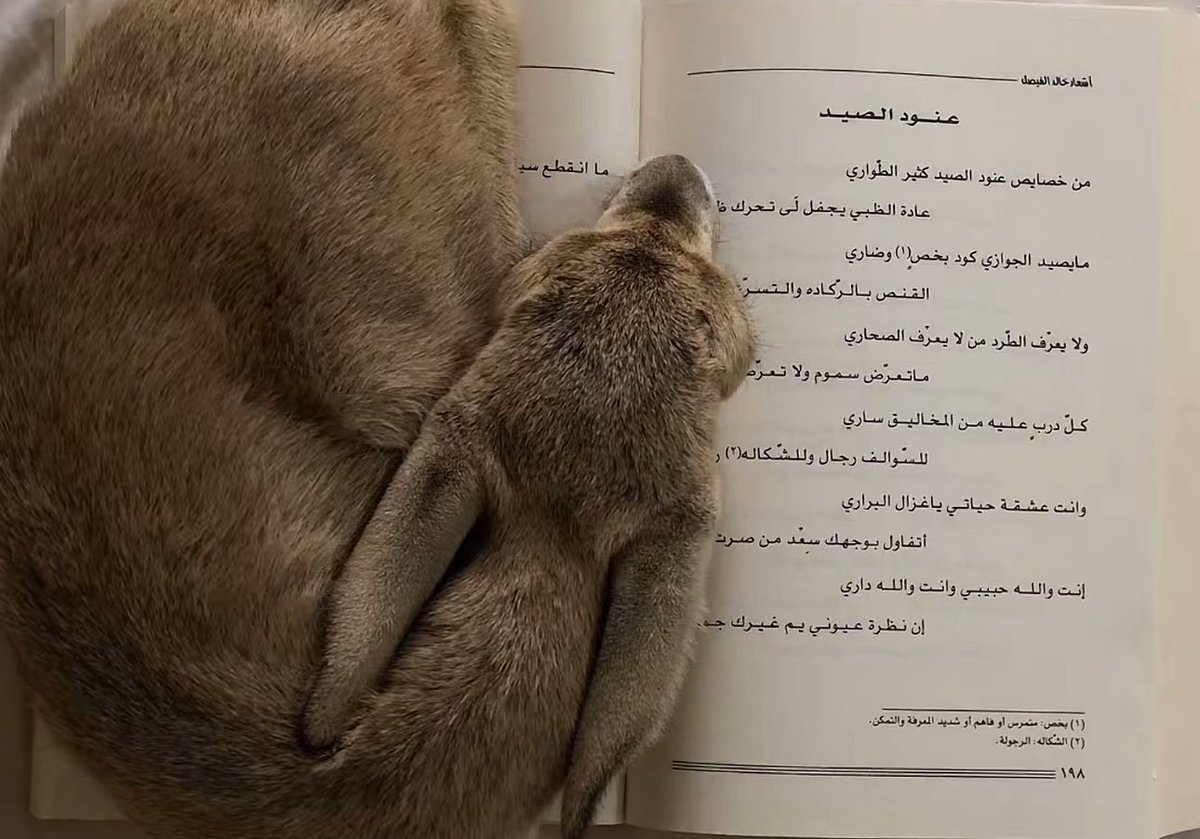 أشعار خالد الفيصل
عنود الصيد
من خصايص عنود الصيد كثير الطّواري
عادة الظبي يجفل لّى تحرك
مايصيد الجوازي كود بخصٍ(١) وضاري
القنص بالرّكاده والتسرّ
ولا يعرْف الطّرد من لا يعرْف الصحاري
ماتعرّض سموم ولا تعرّض
كلّ دربٍ عليه من المخاليق ساري
للسّوالف رجال وللشّكاله(٢)
وانت عشقة حياتي ياغزال البراري
أتفاول بوجهك سِعْد من صرت
إنت والله حبيبي وانت والله داري
إن نظرة عيوني يم غيرك
(١) بخص: متمرس أو فاهم أو شديد المعرفة والتمكن.
(٢) الشكاله: الرجولة.
١٩٨
ما انقطع